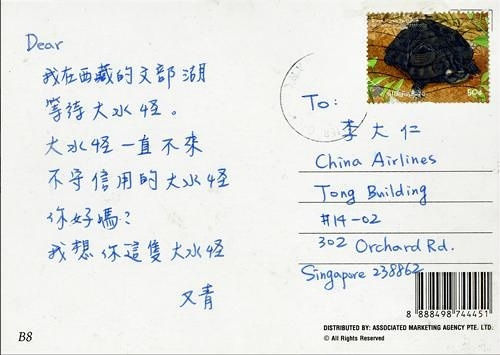 Dear
我在西藏的文部湖
等待大水怪。
大水怪一直不來
不守信用的大水怪
你好嗎?
我想你這隻大水怪
又青
B8
50¢
To:
李大仁
China Airlines
Tong Building
#14-02
302 Orchard Rd.
Singapore 238862
8 888498 744451
DISTRIBUTED BY: ASSOCIATED MARKETING AGENCY PTE. LTD.
© All Rights Reserved